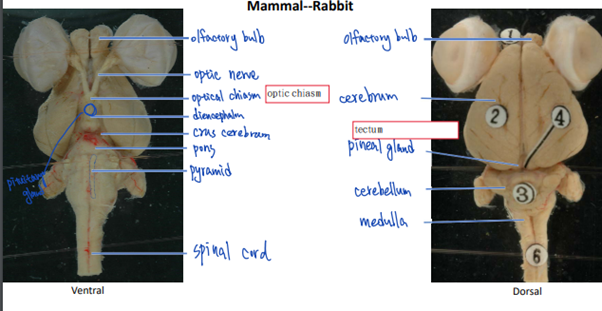 Mammal--Rabbit
olfactory bulb
optic nerve
optical chiasm
optic chiasm
diencephalon
crus cerebrum
pons
pyramid
pituitary
gland
spinal cord
Ventral
olfactory bulb
cerebrum
tectum
pineal gland
cerebellum
medulla
1
2
4
3
6
Dorsal